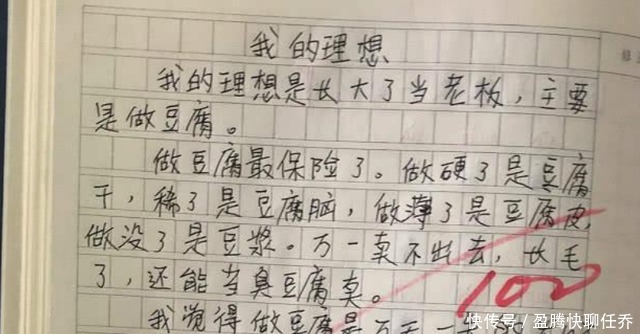 我的理想
我的理想是长大了当老板，主要
是做豆腐。
做豆腐最保险了。做硬了是豆腐
干，稀了是豆腐脑，做薄了是豆腐皮，
做没了是豆浆。万一卖不出去，长毛
了，还能当臭豆腐卖。
100
我觉得做豆腐是万无一
快传号 / 盈腾快聊任乔